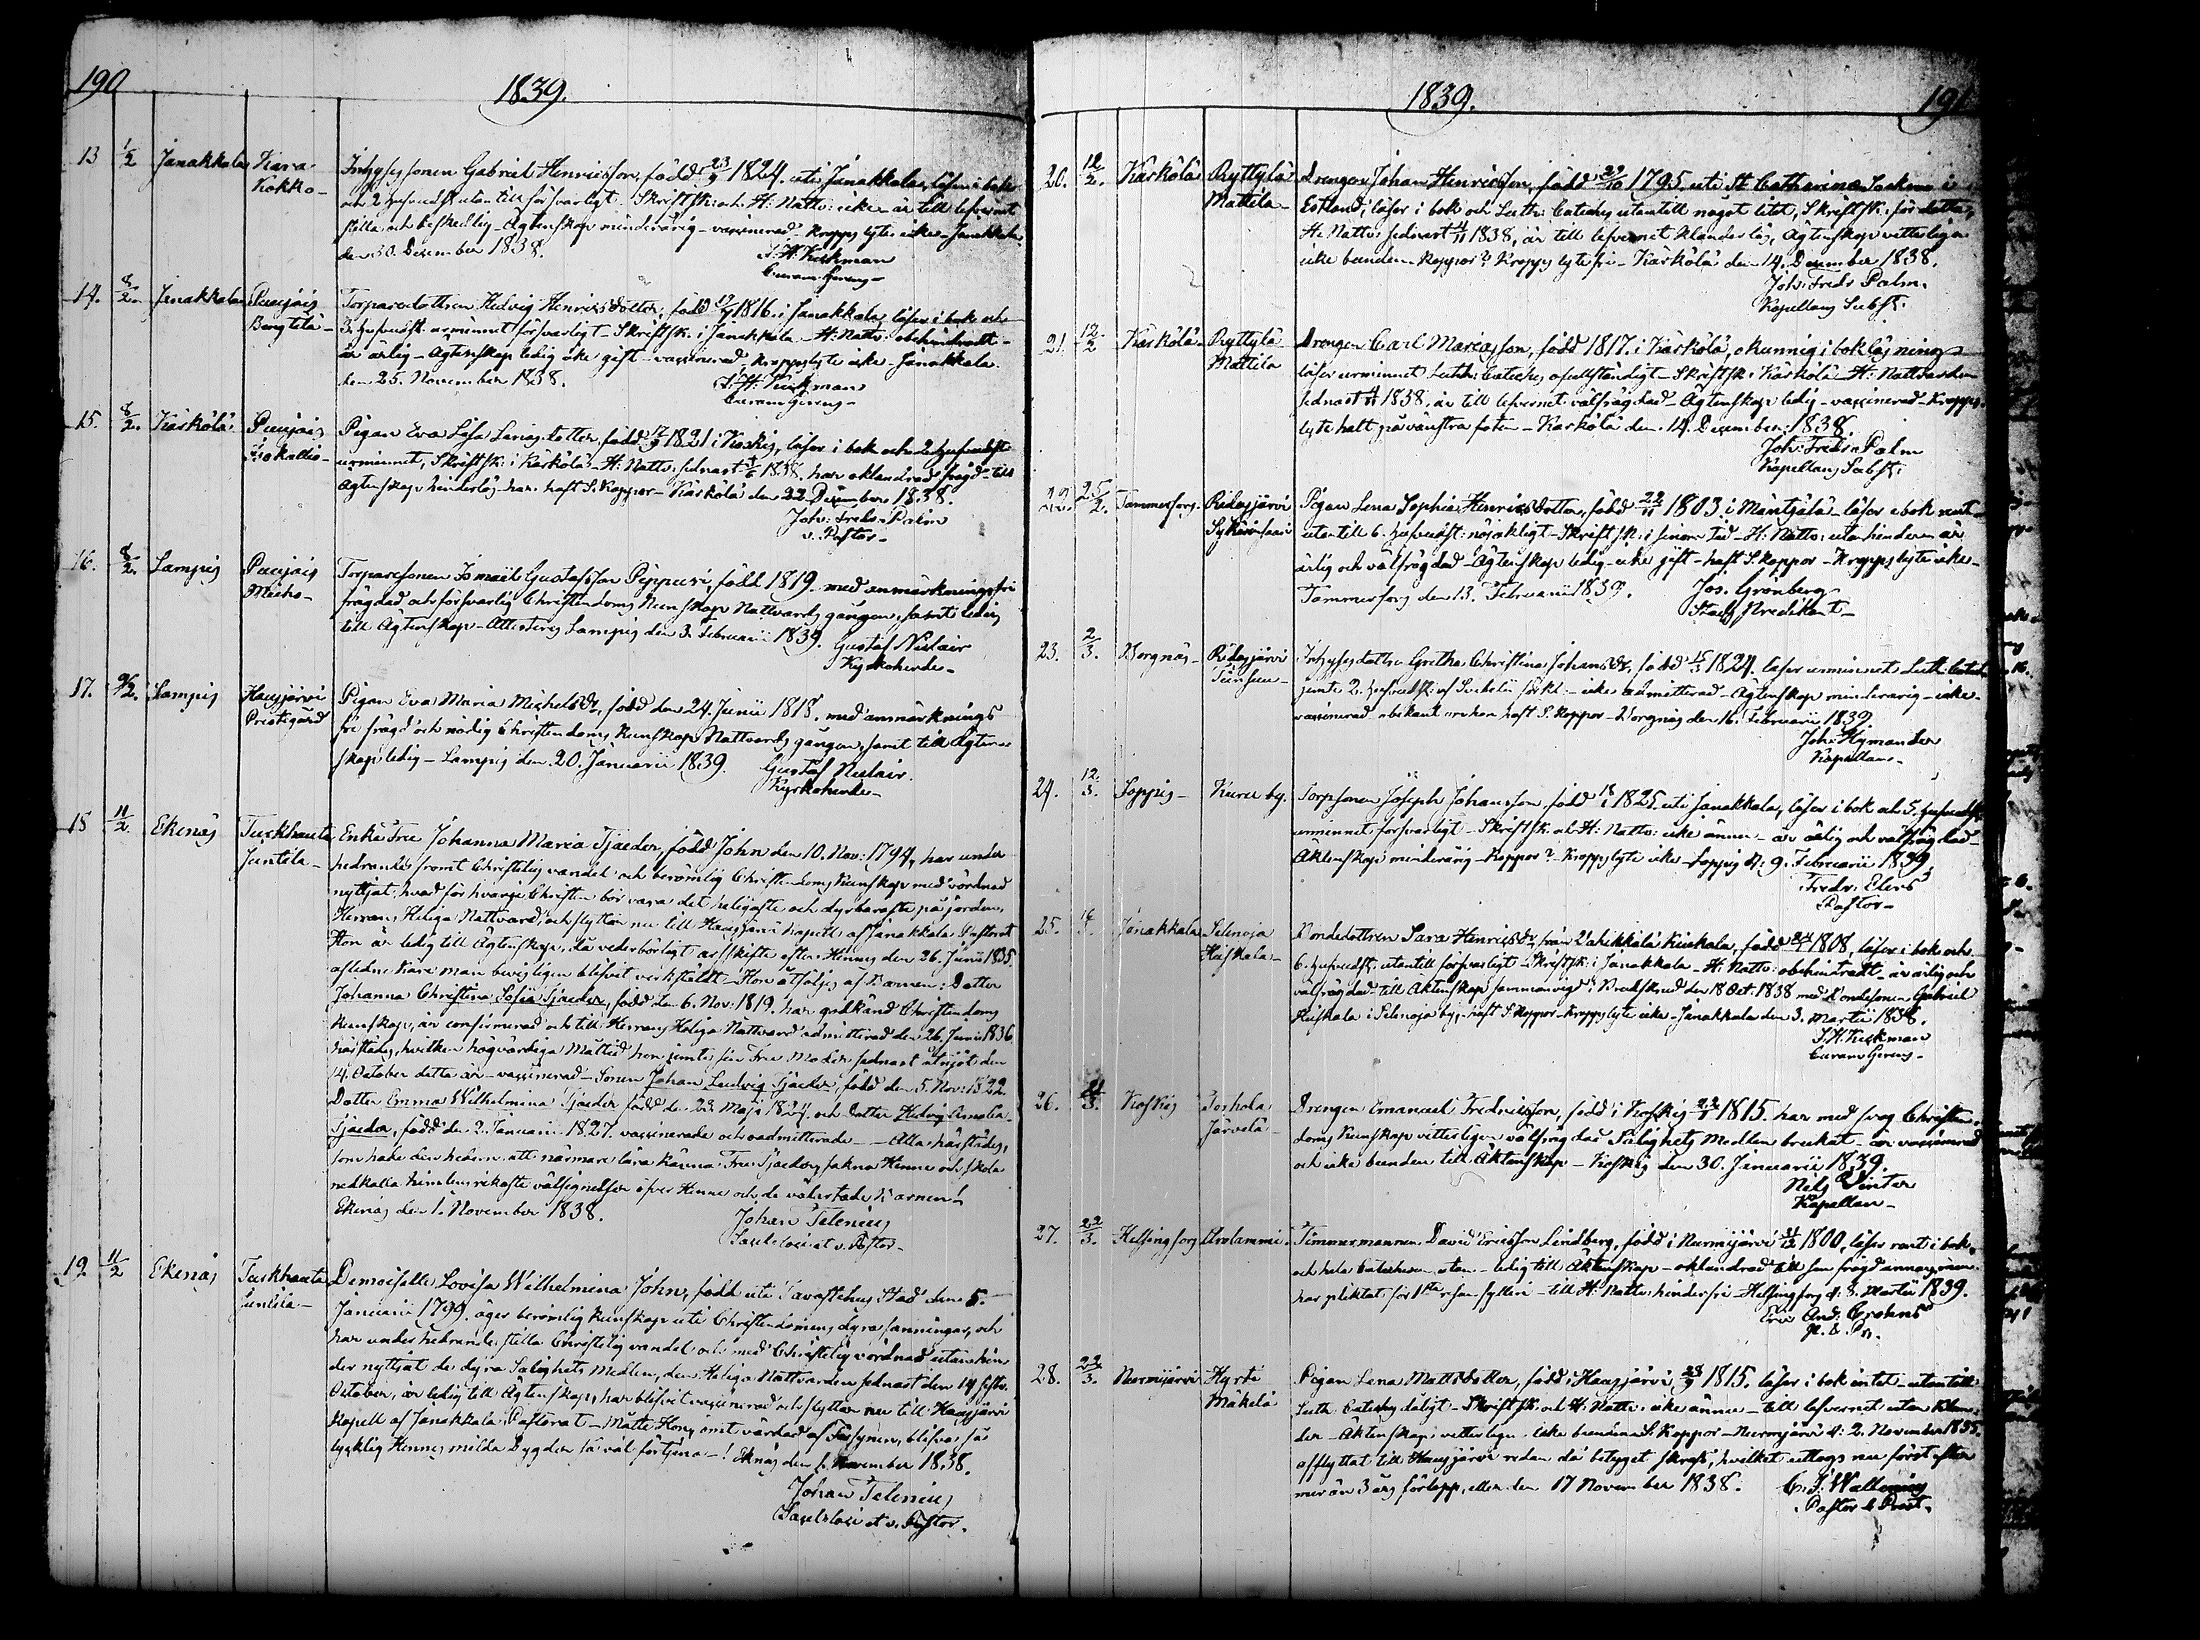 190
1839.
13 1/2 Janakkala Kara-
kokko-
Inhysessonen Gabriel Henricsson, född 23/9 1824. uti Janakkala, läser i bok
och 2 hufvudst. utan till försvarligt. Skriftsk: och H: Nattv: icke - är till lefvernet
stilla och beskedlig - Ägtenskap minderårig - vaccinerad - Kroppslyte icke - Janakkala
den 30. December 1838.
Curam Gerens-
14. 8/2. Janakkala
Torparedottren Hedvig Henricsdotter, född 1816. i Janakkala, läser i bok och
3. hufvudst. urminnet försvarligt - Skriftsk: i Janakkala - H: Nattv: obehindradt -
är ärlig - Ägtenskap ledig icke gift - vaccinerad, kroppslyte icke - Janakkala
den 25. November 1838.
Curam Gerens-
15. 8/2. Kärkölä
Isokallio-
Pigan Eva Lisa dotter, född 1821 i Koskis, läser i bok och 2. hufvudst.
urminnet, Skriftsk: i Kärkölä - H: Nattv: sednast 1838, har oklandrad frägd - till
Ägtenskap hinderlös - har haft S. Koppor - Kärkölä den 22 December 1838.
Joh: Fredr: Palm
v. Pastor-
16. 8/2. Lampis
Torparesonen Ismail Gustafsson Pippuri, född 1819. med anmärkningsfri
frägdad och försvarlig Christendoms Kunskap Nattvards gången, samt ledig
till Ägtenskap - Attesteras Lampis den 3. Februarii 1839.
Gustaf
Kyrkoherde-
17. 9/2. Lampis Hausjärvi
Prestgård
Pigan Eva Maria Michelsdr, född den 24. Junii 1818. med anmärknings
fri frägd och nödig Christendoms kunskap Nattvards gången, samt till Ägten-
skap ledig - Lampis den 20. Januarii 1839.
Gustaf
Kyrkoherde-
18 11/2 Ekenäs Turkhauta
Juntila-
Enke Fru Johanna Maria Tjaeder, född John den 10. Nov: 1794, har under
hedrande fromt Christelig vandel och berömlig Christendoms Kunskap med vördnad
nyttjat, hvad för hvarje Christen bör vara det heligaste och dyrbaraste på jorden,
Herrans Heliga Nattvard, och flyttar nu till Hausjärvi kapell af Janakkala Pastorat
Hon är ledig till Ägtenskap, då vederbörligt arfskifte efter Hennes den 26. Junii 1835.
aflidne Kära man bevisligen blifvit verkställdt - Hon åtföljes af Barnen: Dotter
Johanna Christina Sofia Tjaeder, född den 6. Nov: 1819. har godkänd Christendoms
Kunskap, är confirmerad och till Herrans Heliga Nattvard admitterad den 26. Junii 1836.
härstädes, hvilken högvärdiga Måltid hon jemte sin Fru Moder sednast åtnjöt den
14. October detta år - vaccinerad - Sonen Johan Ludvig Tjaeder, född den 5. Nov: 1822
Dotter Emma Wilhelmina Tjaeder född den 23. Maji 1824. och Dotter Hedvig Amalia
Tjaeder, född den 2. Januarii 1827. vaccinerade och oadmitterade - - Alla härstädes,
som hade den hedern att närmare lära känna Fru Tjaeder, sakna Henne och skola
nedkalla himlens rikaste välsignelser öfver Henne och de välurtade Barnen!
Ekenäs den 1. November 1838.
Johan Telenius
v. Pastor-
19 11/2 Ekenäs Turkhauta
Juntila-
Demoiselle Lovisa Wilhelmina John, född uti Tavastehus Stad den 5.
Januarii 1799. äger berömlig kunskap uti Christendomens dyra sanningar, och
har under hedrande stilla Christelig vandel och med Christelig vördnad utan hin-
der nyttjat de dyra Salighets Medlen, den Heliga Nattvarden sednast den 14
October, är ledig till Ägtenskap, har blifvit vaccinerad och flyttar nu till Hausjärvi
Kapell af Janakkala Pastorat - Måtte Hon, ömt vårdad af Försynen, blifva så
lycklig Hennes milda Dygder så väl förtjena - ! Ekenäs den 1. November 1838.
Johan Telenius
v. Pastor.
1839.
191
20. 12/2. Kärkölä Ryttylä
Mattila-
Drengen Johan Henricsson, född 29/10 1795 uti St Catharina Socken i
Estland, läser i bok och Luth: Cateches utantill något litet, Skriftsk: för detta,
H: Nattv: sednast 4/11 1838, är till lefvernet klanderlös, Ägtenskap vetterligen
icke bunden - Koppor? Kropps lyte fri - Kärkölä den 14. December 1838.
Joh: Fredr Palm.
Kapellans Subst:
21. 12/2 Kärkölä Ryttylä
Mattila
Drengen Carl Mariasson, född 1817. i Kärkölä, okunnig i bokläsning
läser urminnet Luth: Cateches ofullständigt - Skriftsk: i Kärkölä - H: Nattvarden
sednast 4/11 1838, är till lefvernet välfrägdad - Ägtenskap ledig - vaccinerad - Kropps-
lyte halt på vänstra foten - Kärkölä den 14. December 1838.
Joh: Fredr: Palm
Kapellans Subst:
22. 25/2. Tammerfors. Ridasjärvi
Pigan Lena Sophia Henricsdotter, född 22/11 1803 i Mäntsälä - läser i bok rent
utantill 6. hufvudst: nöjaktligt - Skriftsk: i sinom tid - H: Nattv: utan hinder är
ärlig och välfrägdad - Ägtenskap ledig - icke gift - haft S. koppor - Kroppslyte icke -
Tammerfors den 13. Februarii 1839.
Jos. Grönberg
Stads Predikant-
23. 2/3. Borgnäs- Ridasjärvi
Inhysesdottren Gretha Christina Johansdr, född 15/3 1824. läser urminnet Luth: Catech:
jemte 2. hufvudst: af Svebelii förkl: - icke admitterad - Ägtenskap minderårig - icke
vaccinerad obekant om hon haft S. koppor - Borgnäs den 16. Februarii 1839.
Joh: Hymander
Kapellan-
24. 12/3. Loppis- Kuru by.
Torpsonen Joseph Johansson, född 1825 uti Janakkala, läser i bok och 5. hufvudst.
urminnet försvarligt - Skriftsk: och H: Nattv: icke ännu - är ärlig och välfrägdad -
Äktenskap: minderårig - Koppor? Kroppslyte icke - Loppis d: 9. Februarii 1839.
Fredr: Elers
Pastor-
25. Janakkala Selenoja
Heiskala-
Bondedottren Sara Henricsdr, från Vahikkälä Kuiskala, född 1808, läser i bok och
6. hufvudst. utantill försvarligt - Skriftsk: i Janakkala - H: Nattv: obehindradt - är ärlig och
välfrägdad - till Äktenskap sammanvigd i den 18 Oct. 1838 med Bondesonen Gabriel
Heiskala i Selenoja by, - haft S. Koppor - Kroppslyte icke - Janakkala den 3. Martii 1838.
Curam Gerens-
26. 21/3. Koskis Torhola
Järvelä-
Drengen Emanuel Fredricsson, född i Koskis 1815. har med svag Christen-
doms Kunskap vetterligen välfrägdad Salighets Medlen brukat - är vaccinerad
och icke bunden till Äktenskap - Koskis den 30. Januarii 1839.
Nils Winter
Kapellan-
27. 22/3. Helsingfors Arolammi.
Timmermannen David Ericsson Lindberg, född i Nurmijärvi 1800, läser rent i bok,
och hela Catechesen utan - ledig till Äktenskap - oklandrad till sin frägd annars, men
har pliktat för 1sta resan fylleri - till H: Nattv: hinderfri - Helsingfors d: 8. Martii 1839.
And: Crohns
28. 22/3. Nurmijärvi Hyrti
Mäkelä
Pigan Lena Mattsdotter, född i Hausjärvi 28/9 1815. läser i bok intet - utantill
Luth. Cateches dåligt - Skriftsk. och H: Nattv: icke ännu - till lefvernet utan klan-
der - Äktenskap: vetterligen icke bunden - S. Koppor - Nurmijärvi d: 2. November 1835.
afflyttat till Hausjärvi redan då betyget skrefs, hvilket uttogs nu först efter
mer än 3 års förlopp, eller den 17 November 1838.
Pastor & Prost.